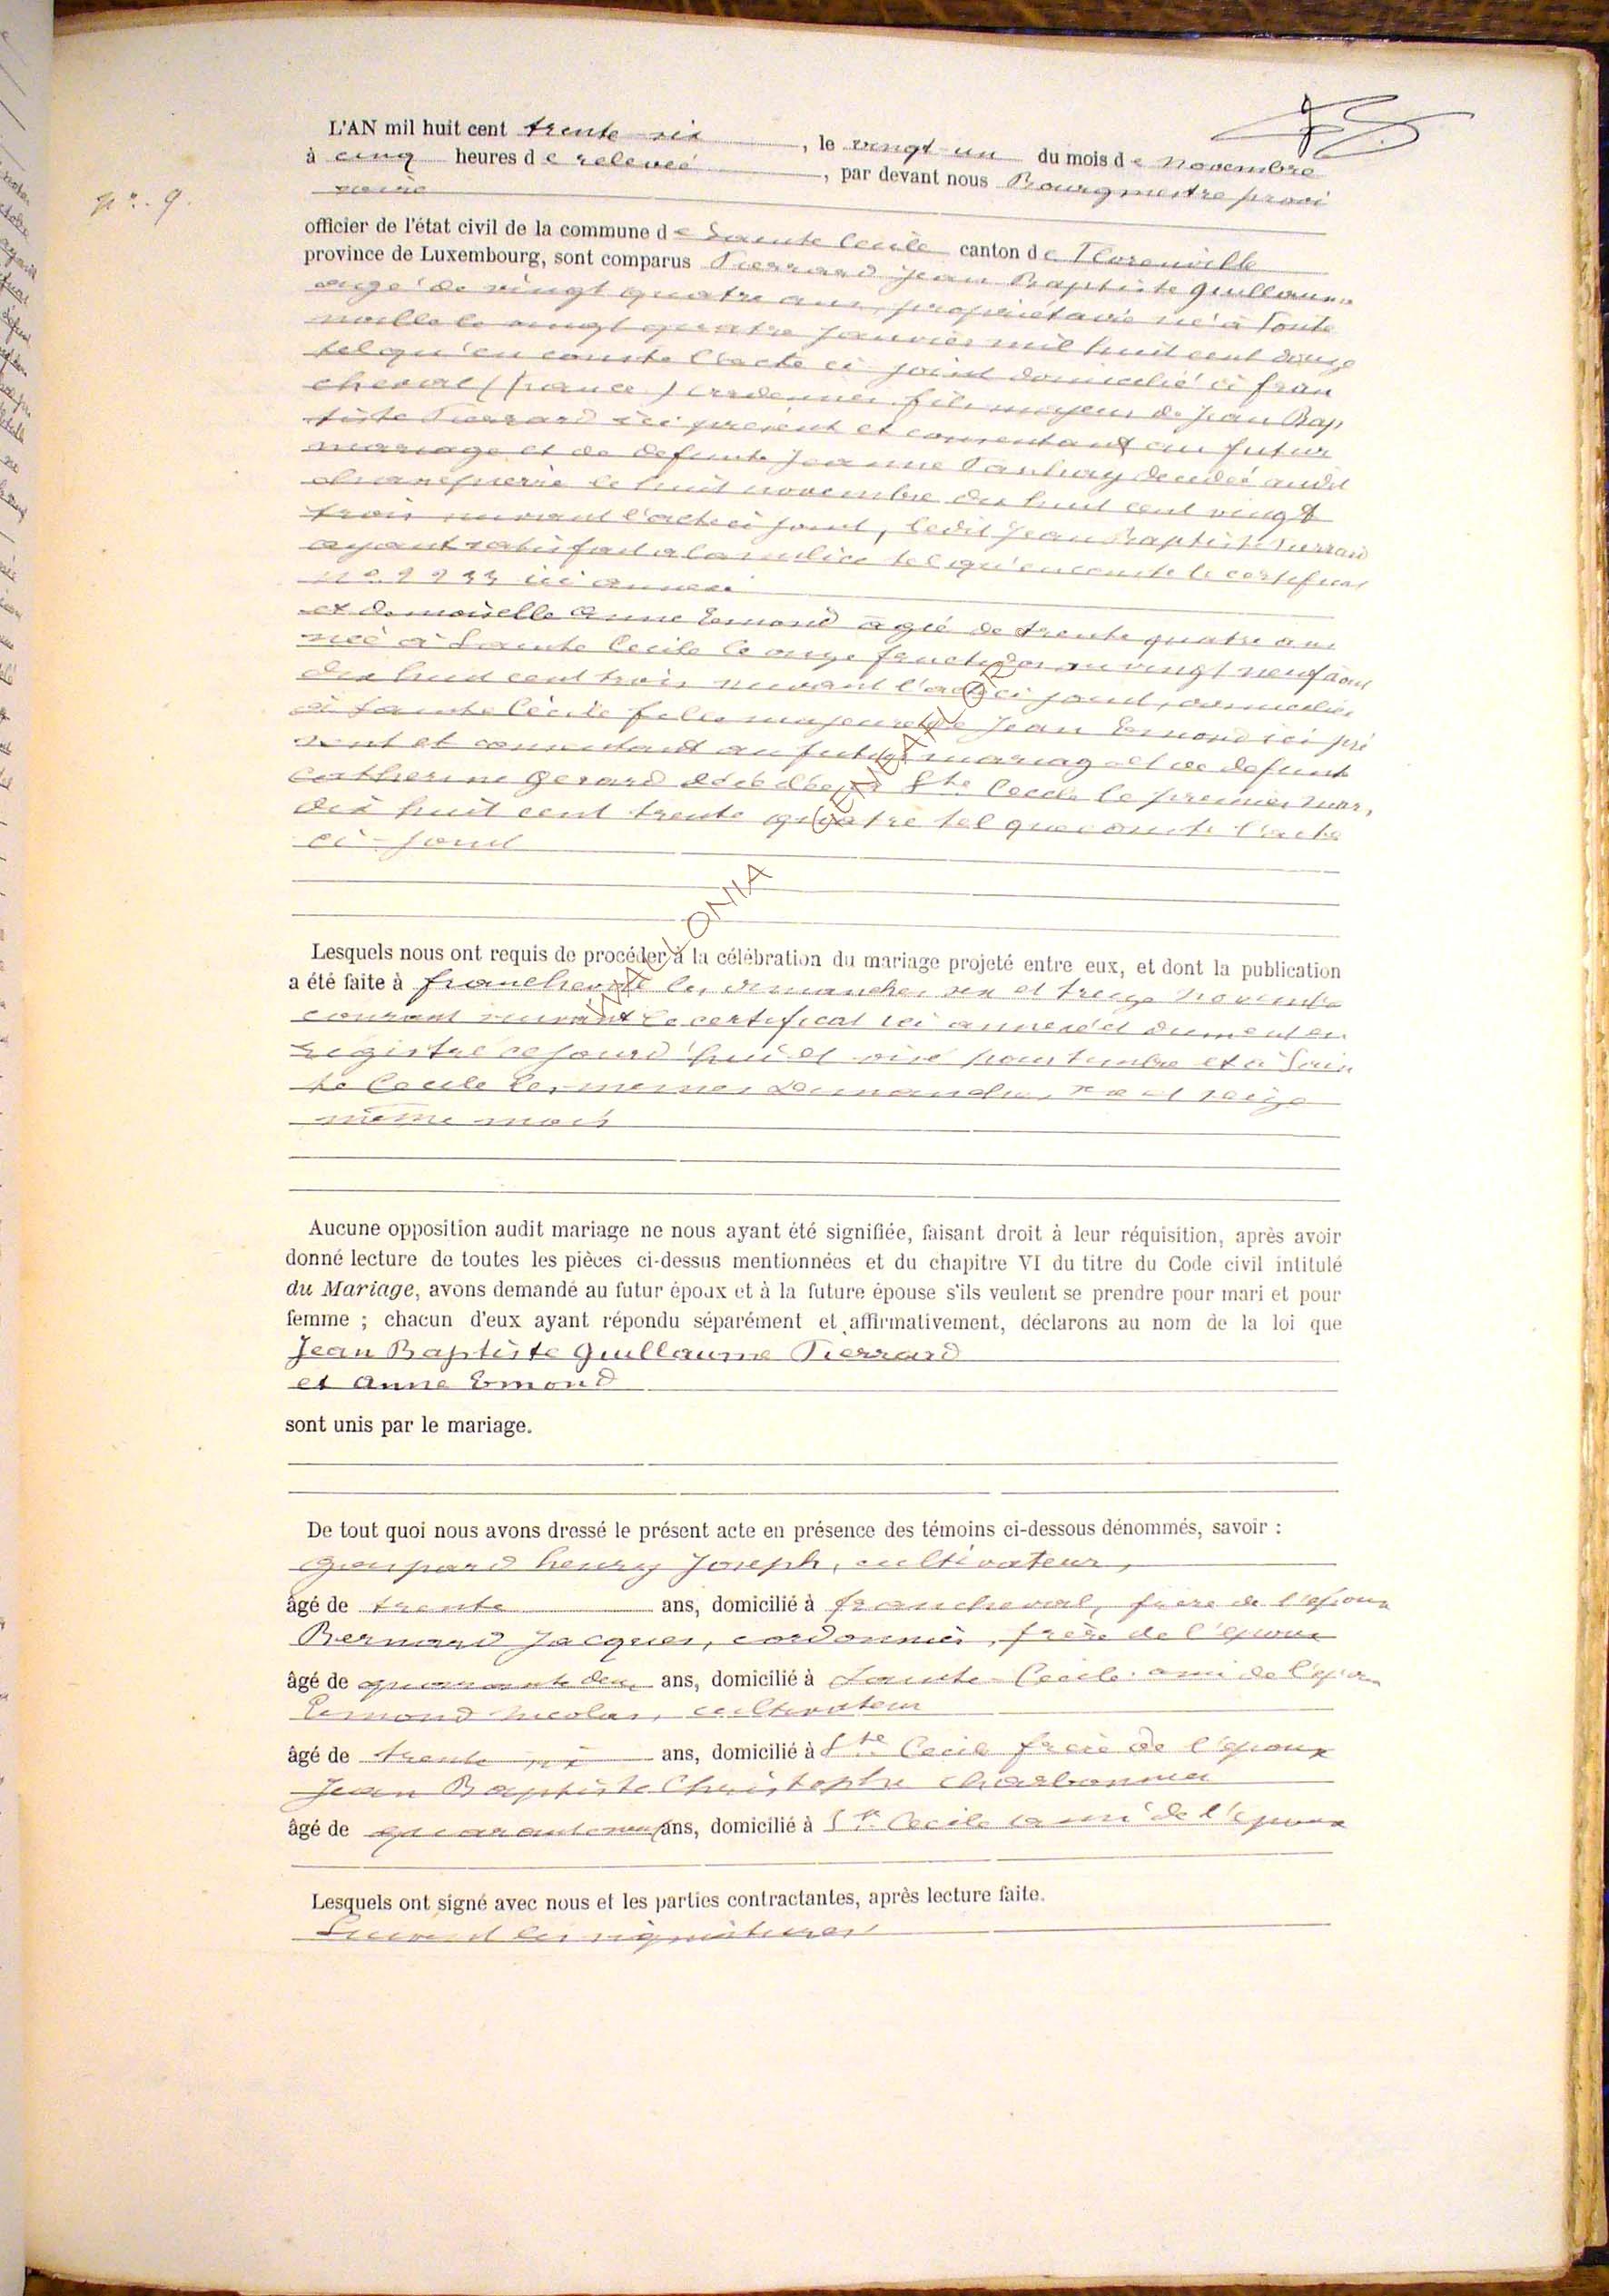 L'AN mil huit cent trente six, le vingt un du mois de Novembre
à cinq heures de releveé, par devant nous Bourgmestre provi
soire
n°. 9.
officier de l'état civil de la commune de Sainte Cecile canton de Florenville
province de Luxembourg, sont comparus Pierrard Jean Baptiste Guillaume
agé de vingt quatre ans, propriétaire né à Fonte
noille le vingt quatre Janvier mil huit cent douze
tel qu'en conste l'acte ci joint domicilié à fran
cheval (france) ardennes fils majeur de Jean Bap
tiste Pierrard ici présent et consentant au futur
mariage et de defunte Jeanne décédeé audit
le huit novembre dix huit cent vingt
trois suivant l'acte ci joint, ledit Jean Baptiste Pierrard
ayant satisfait a la milice tel qu'en conste le certificat
ici annexé
et demoiselle Anne Emond agée de trente quatre ans
neé à Sainte Cecile le onze fructidor ou vingt neuf aout
dix huit cent trois suivant l'acte ci joint, domiciliée
à Sainte Cécile fille majeure de Jean Emond ici pré
sent et consentant au futur mariage et de defunte
Catherine Gerard décédée à Ste Cecile le premier mars
dix huit cent trente quatre tel que conste l'acte
ci-joint
WALLONIA GENEAFLOR
Lesquels nous ont requis de procéder à la célébration du mariage projeté entre eux, et dont la publication
a été faite à francheval les dimanches six et treize novembre
courant suivant le certificat ici annexé et dument en
registré ce jourd'hui et visé pour timbre et à Sain
te Cecile les memes Dimanches six et treize
même mois
Aucune opposition audit mariage ne nous ayant été signifiée, faisant droit à leur réquisition, après avoir
donné lecture de toutes les pièces ci-dessus mentionnées et du chapitre VI du titre du Code civil intitulé
du Mariage, avons demandé au futur époux et à la future épouse s'ils veulent se prendre pour mari et pour
femme ; chacun d'eux ayant répondu séparément et affirmativement, déclarons au nom de la loi que
Jean Baptiste Guillaume Pierrard
et Anne Emond
sont unis par le mariage.
De tout quoi nous avons dressé le présent acte en présence des témoins ci-dessous dénommés, savoir :
Gaspard henry Joseph, cultivateur,
âgé de trente ans, domicilié à francheval, frere de l'epoux
Bernard Jacques, cordonnier, frère de l'epoux
âgé de quarante deux ans, domicilié à Sainte-Cecile ami de l'epoux
Emond Nicolas, cultivateur
âgé de trente ans, domicilié à Ste Cecile frere de l'epoux
Jean Baptiste Christophe charbonnier
âgé de quarante neuf ans, domicilié à Ste Cecile ami de l'epoux
Lesquels ont signé avec nous et les parties contractantes, après lecture faite.
Suivent les signatures